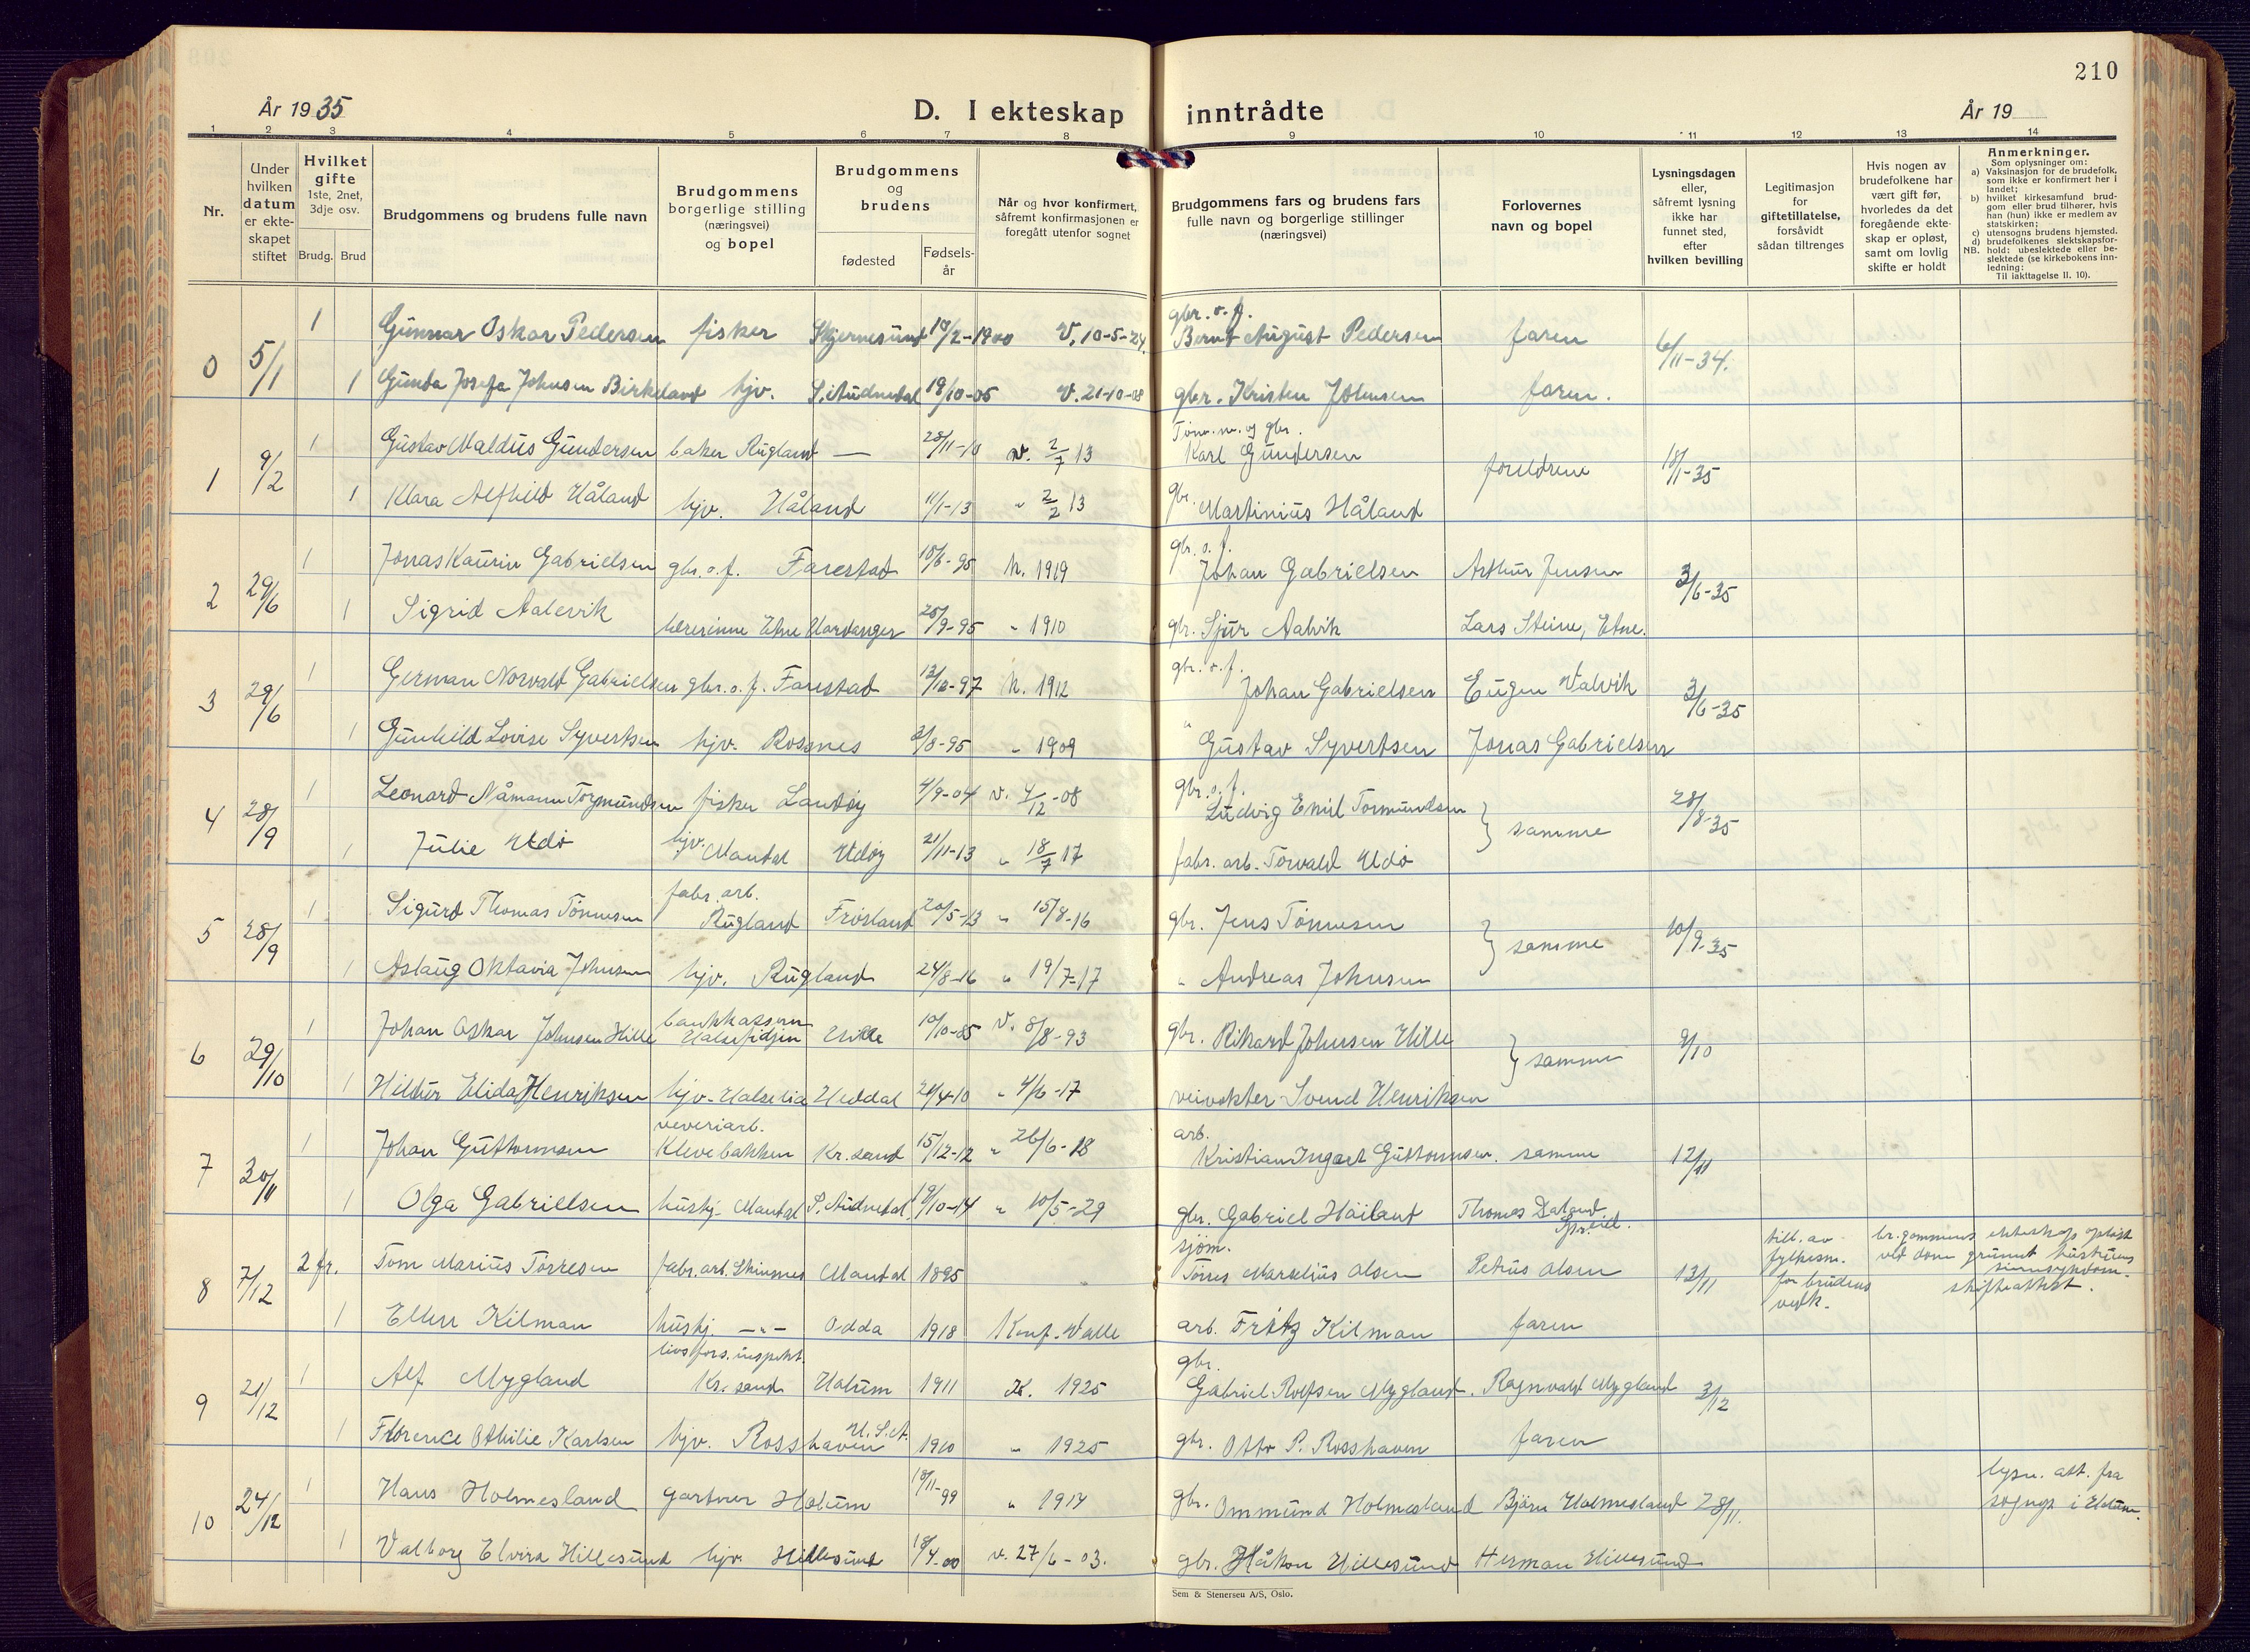 210
År 1935
D. I ekteskap inntrådte
År 19
1 2 3 4 5 6 7 8 9 10 11 12 13 14
Nr.
Under hvilken datum er ekteskapet stiftet
Hvilket gifte 1ste, 2net, 3dje osv.
Brudg. Brud
Brudgommens og brudens fulle navn
Brudgommens borgerlige stilling (næringsvei) og bopel
Brudgommens og brudens
fødested
Fødsels-år
Når og hvor konfirmert, såfremt konfirmasjonen er foregått utenfor sognet
Brudgommens fars og brudens fars fulle navn og borgerlige stillinger (næringsvei)
Forlovernes navn og bopel
Lysningsdagen eller, såfremt lysning ikke har funnet sted, efter hvilken bevilling
Legitimasjon for giftetillatelse, forsåvidt sådan tiltrenges
Hvis nogen av brudefolkene har vært gift før, hvorledes da det foregående ekteskap er opløst, samt om lovlig skifte er holdt
Anmerkninger.
Som oplysninger om:
a) Vaksinasjon for de brudefolk, som ikke er konfirmert her i landet;
b) hvilket kirkesamfund brudgom eller brud tilhører, hvis han (hun) ikke er medlem av statskirken;
c) utensogns brudens hjemsted.
d) brudefolkenes slektskapsforhold: ubeslektede eller beslektede (se kirkebokens innledning:
NB. Til iakttagelse II. 10).
0 5/1 1 Gunnar Oskar Pedersen fisker Skjernesund 18/2-1900 V. 10-5-24. gbr. o. f. Bernt August Pedersen faren 6/11-34.
1 Gunda Josefa Johnsen Birkeland hjv. S. Audnedal 19/10-05 V. 21-10-08 gbr. Kristen Johnsen faren.
1 9/2 1 Gustav Valdus Gundersen baker Rugland — 28/11-10 v. 2/7 13 Karl Gundersen foreldrene 18/1-35
1 Klara Alfhild Håland hjv. Håland 11/1-13 " 2/2 13 gbr. Martinius Håland
2 29/6 1 Jonas Kaurin Gabrielsen gbr. o. f. Farestad 10/6-95 h. 1919 gbr. o. f. Johan Gabrielsen Arthur Jensen 3/6-35
1 Sigrid Aalvik lærerinne Etne Hardanger 25/9-95 " 1910 gbr. Sjur Aalvik Lars Steine, Etne.
3 29/6 1 German Norvald Gabrielsen gbr. o. f. Farestad 13/12-97 h. 1912 gbr. o. f. Johan Gabrielsen Eugen Valvik 3/6-35
1 Gunhild Lovise Syvertsen hjv. Rosnes 2/8-95 " 1909 " Gustav Syvertsen Jonas Gabrielsen
4 28/9 1 Leonard Nåmann Tormundsen fisker Landøy 4/9-04 v. 4/12-08 gbr. o. f. Ludvig Emil Tormundsen } samme 28/8-35
1 Julie Udø hjv. Mandal Udøy 21/11-13 " 18/7 17 fabr. arb. Torvald Udø
5 28/9 1 Sigurd Thomas Tønnesen fabr. arb. Rugland Frøsland 20/5-13 " 15/8-16 gbr. Jens Tønnesen } samme 10/9-35
1 Aslaug Oktavia Johnsen hjv. Rugland 24/8-16 " 19/7-17 " Andreas Johnsen
6 29/10 1 Johan Oskar Johnsen Hille bankkasserer Halsefidjen Hille 10/10-85 V. 8/8-93 gbr. Rikard Johnsen Hille } samme 9/10
1 Hildur Elida Henriksen hjv. Halselia Heddal 21/4-10 " 4/6-17 veivokter Svend Henriksen
7 30/11 1 Johan Guttormsen veveriarb. Klevebakken Kr.sand 15/12-12 " 26/6-18 arb. Kristian Ingart Guttormsen. samme 12/11
1 Olga Gabrielsen hushj. Mandal S. Audnedal 19/10-14 " 10/5-29 gbr. Gabriel Høiland Thomas Daland
8 7/12 2 fr. Tom Marius Tørresen fabr. arb. Skinsnes Mandal 1895 sjøm. Tørres Marselius Olsen Petrus Olsen 12/11 till. av fylkesm. for brudens vedk. br.gommens ekteskap opløst ved dom grunnet hustruens sinnsykdom. skifteattest.
1 Ellen Kilman hushj. —"— Odda 1918 Konf. Valle arb. Fritz Kilman faren
9 21/12 1 Alf Mygland livsfors. inspekt. Kr.sand Halum 1911 H. 1925 gbr. Gabriel Rolfsen Mygland. Ragnvald Mygland 3/12
1 Florence Othilie Karlsen hjv. Rosshaven U.S.A. 1910 " 1925 gbr. Otto P. Rosshaven faren
10 24/12 1 Hans Holmesland gartner Holum 18/11-99 " 1914 gbr. Ommund Holmesland Bjørn Holmesland 28/11. lysn. att. fra sognepr. i Holum.
1 Valborg Elvira Hillesund hjv. Hillesund 18/4-00 v. 27/6-03. gbr. Håkon Hillesund Herman Hillesund
Sem & Stenersen A/S, Oslo.